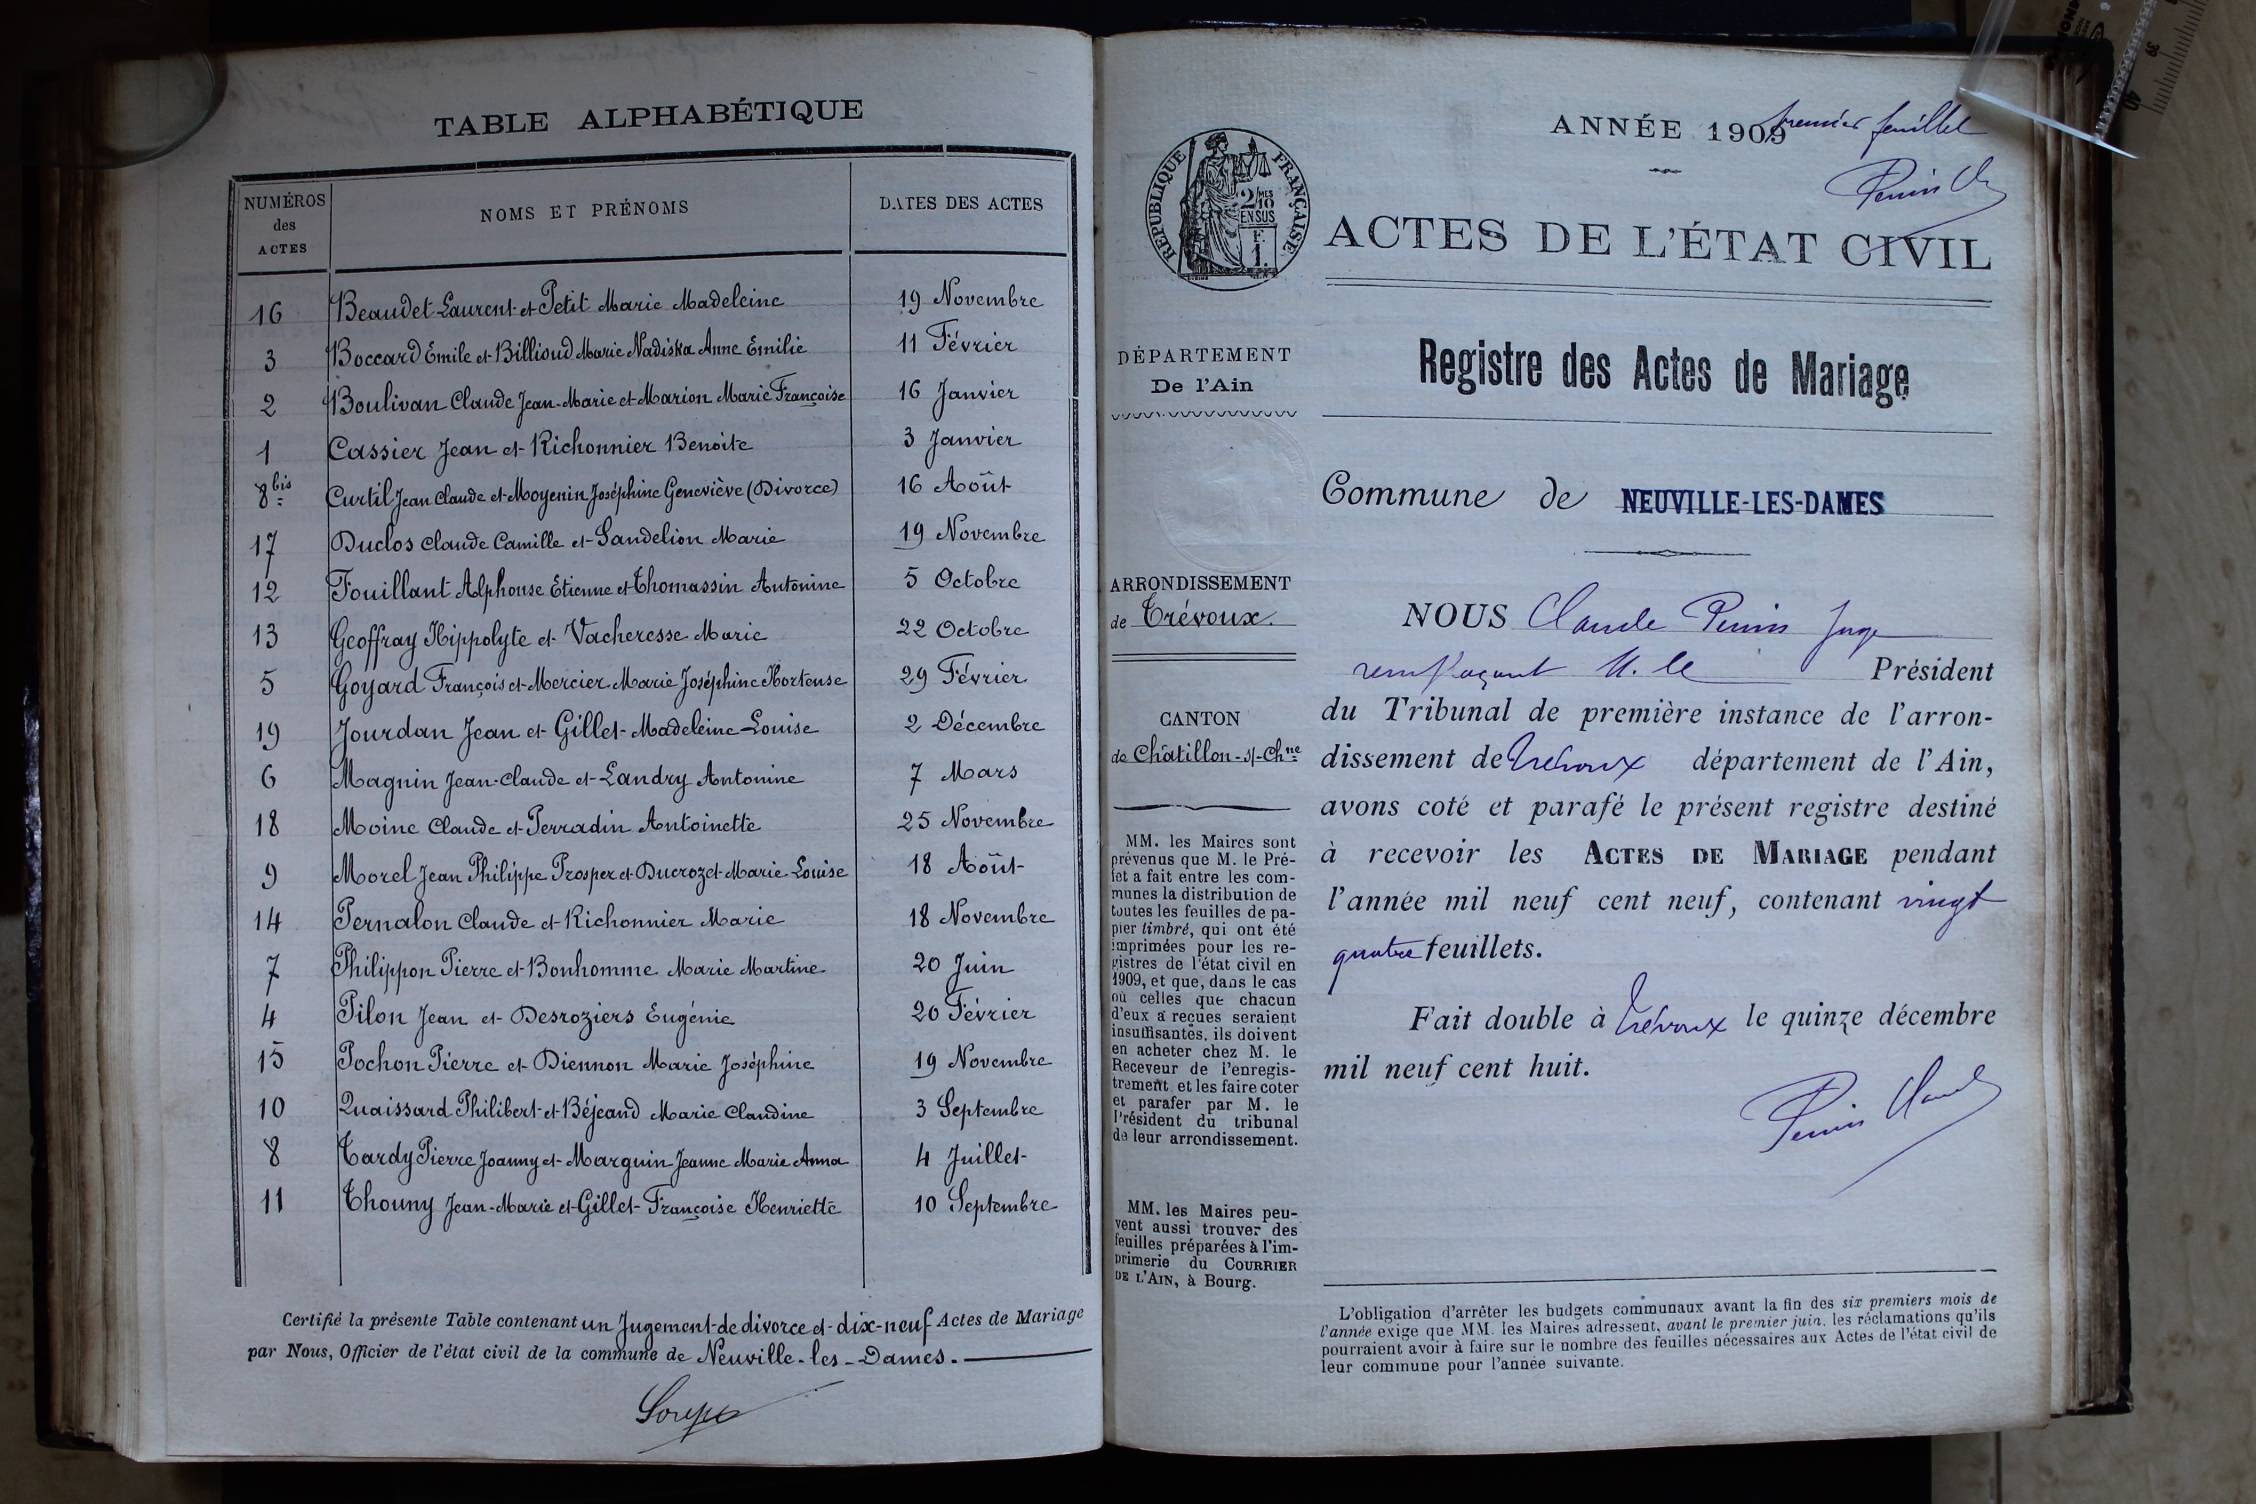 TABLE ALPHABÉTIQUE
NUMÉROS des ACTES NOMS ET PRÉNOMS DATES DES ACTES
16 Beaudet Laurent et Petit Marie Madeleine 19 Novembre
3 Boccard Émile et Billioud Marie Nadiska Anne Émilie 11 Février
2 Boulivan Claude Jean-Marie et Marion Marie Françoise 16 Janvier
1 Cassier Jean et Richonnier Benoite 3 Janvier
8 bis Curtil Jean Claude et Moyenin Joséphine Geneviève (Divorce) 16 Août
17 Duclos Claude Camille et Sandelion Marie 19 Novembre
12 Fouillant Alphonse Etienne et Thomassin Antonine 5 Octobre
13 Geoffray Hippolyte et Vacheresse Marie 22 Octobre
5 Goyard François et Mercier Marie Joséphine Hortense 29 Février
19 Jourdan Jean et Gillet Madeleine Louise 2 Décembre
6 Magnin Jean-Claude et Landry Antonine 7 Mars
18 Moine Claude et Perradin Antoinette 25 Novembre
9 Morel Jean Philippe Prosper et Ducrozet Marie Louise 18 Août
14 Pernalon Claude et Richonnier Marie 18 Novembre
7 Philippon Pierre et Bonhomme Marie Martine 20 Juin
4 Pilon Jean et Desroziers Eugénie 20 Février
15 Pochon Pierre et Diennon Marie Joséphine 19 Novembre
10 Quaissard Philibert et Béjeand Marie Claudine 3 Septembre
8 Tardy Pierre Joanny et Marguin Jeanne Marie Anna 4 Juillet
11 Thouny Jean-Marie et Gillet Françoise Henriette 10 Septembre
Certifié la présente Table contenant un Jugement de divorce et dix-neuf Actes de Mariage
par Nous, Officier de l'état civil de la commune de Neuville-les-Dames.
ANNÉE 1909
premier feuillet
RÉPUBLIQUE FRANÇAISE
2/10 MES
EN SUS
F.
1.
ACTES DE L'ÉTAT CIVIL
DÉPARTEMENT
De l'Ain
ARRONDISSEMENT
de Trévoux.
CANTON
de Châtillon-s/-Chne
MM. les Maires sont
prévenus que M. le Pré-
fet a fait entre les com-
munes la distribution de
toutes les feuilles de pa-
pier timbré, qui ont été
imprimées pour les re-
gistres de l'état civil en
1909, et que, dans le cas
où celles que chacun
d'eux a reçues seraient
insuffisantes, ils doivent
en acheter chez M. le
Receveur de l'enregis-
trement et les faire coter
et parafer par M. le
Président du tribunal
de leur arrondissement.
MM. les Maires peu-
vent aussi trouver des
feuilles préparées à l'im-
primerie du COURRIER
DE L'AIN, à Bourg.
Registre des Actes de Mariage
Commune de NEUVILLE-LES-DAMES
NOUS Claude Perrin Juge
remplaçant M. le Président
du Tribunal de première instance de l'arron-
dissement de Trévoux département de l'Ain,
avons coté et parafé le présent registre destiné
à recevoir les ACTES DE MARIAGE pendant
l'année mil neuf cent neuf, contenant vingt
quatre feuillets.
Fait double à Trévoux le quinze décembre
mil neuf cent huit.
Perrin Claude
L'obligation d'arrêter les budgets communaux avant la fin des six premiers mois de
l'année exige que MM. les Maires adressent, avant le premier juin, les réclamations qu'ils
pourraient avoir à faire sur le nombre des feuilles nécessaires aux Actes de l'état civil de
leur commune pour l'année suivante.